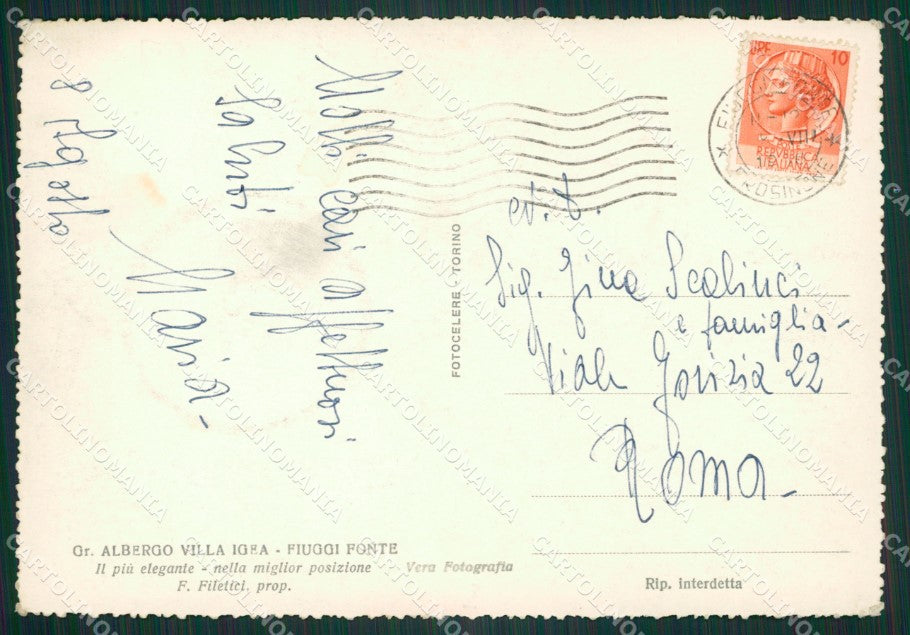 8 Agosto
Molti cari affettuosi
saluti
Maria-
FOTOCELERE - TORINO
LIRE 10
REPUBBLICA
ITALIANA
Sig. Gina Scalinci
e famiglia-
Viale Gorizia 22
Roma-
Gr. ALBERGO VILLA IGEA - FIUGGI FONTE
Il più elegante - nella miglior posizione
F. Filetici. prop.
Vera Fotografia
Rip. interdetta
CARTOLINOMANIA